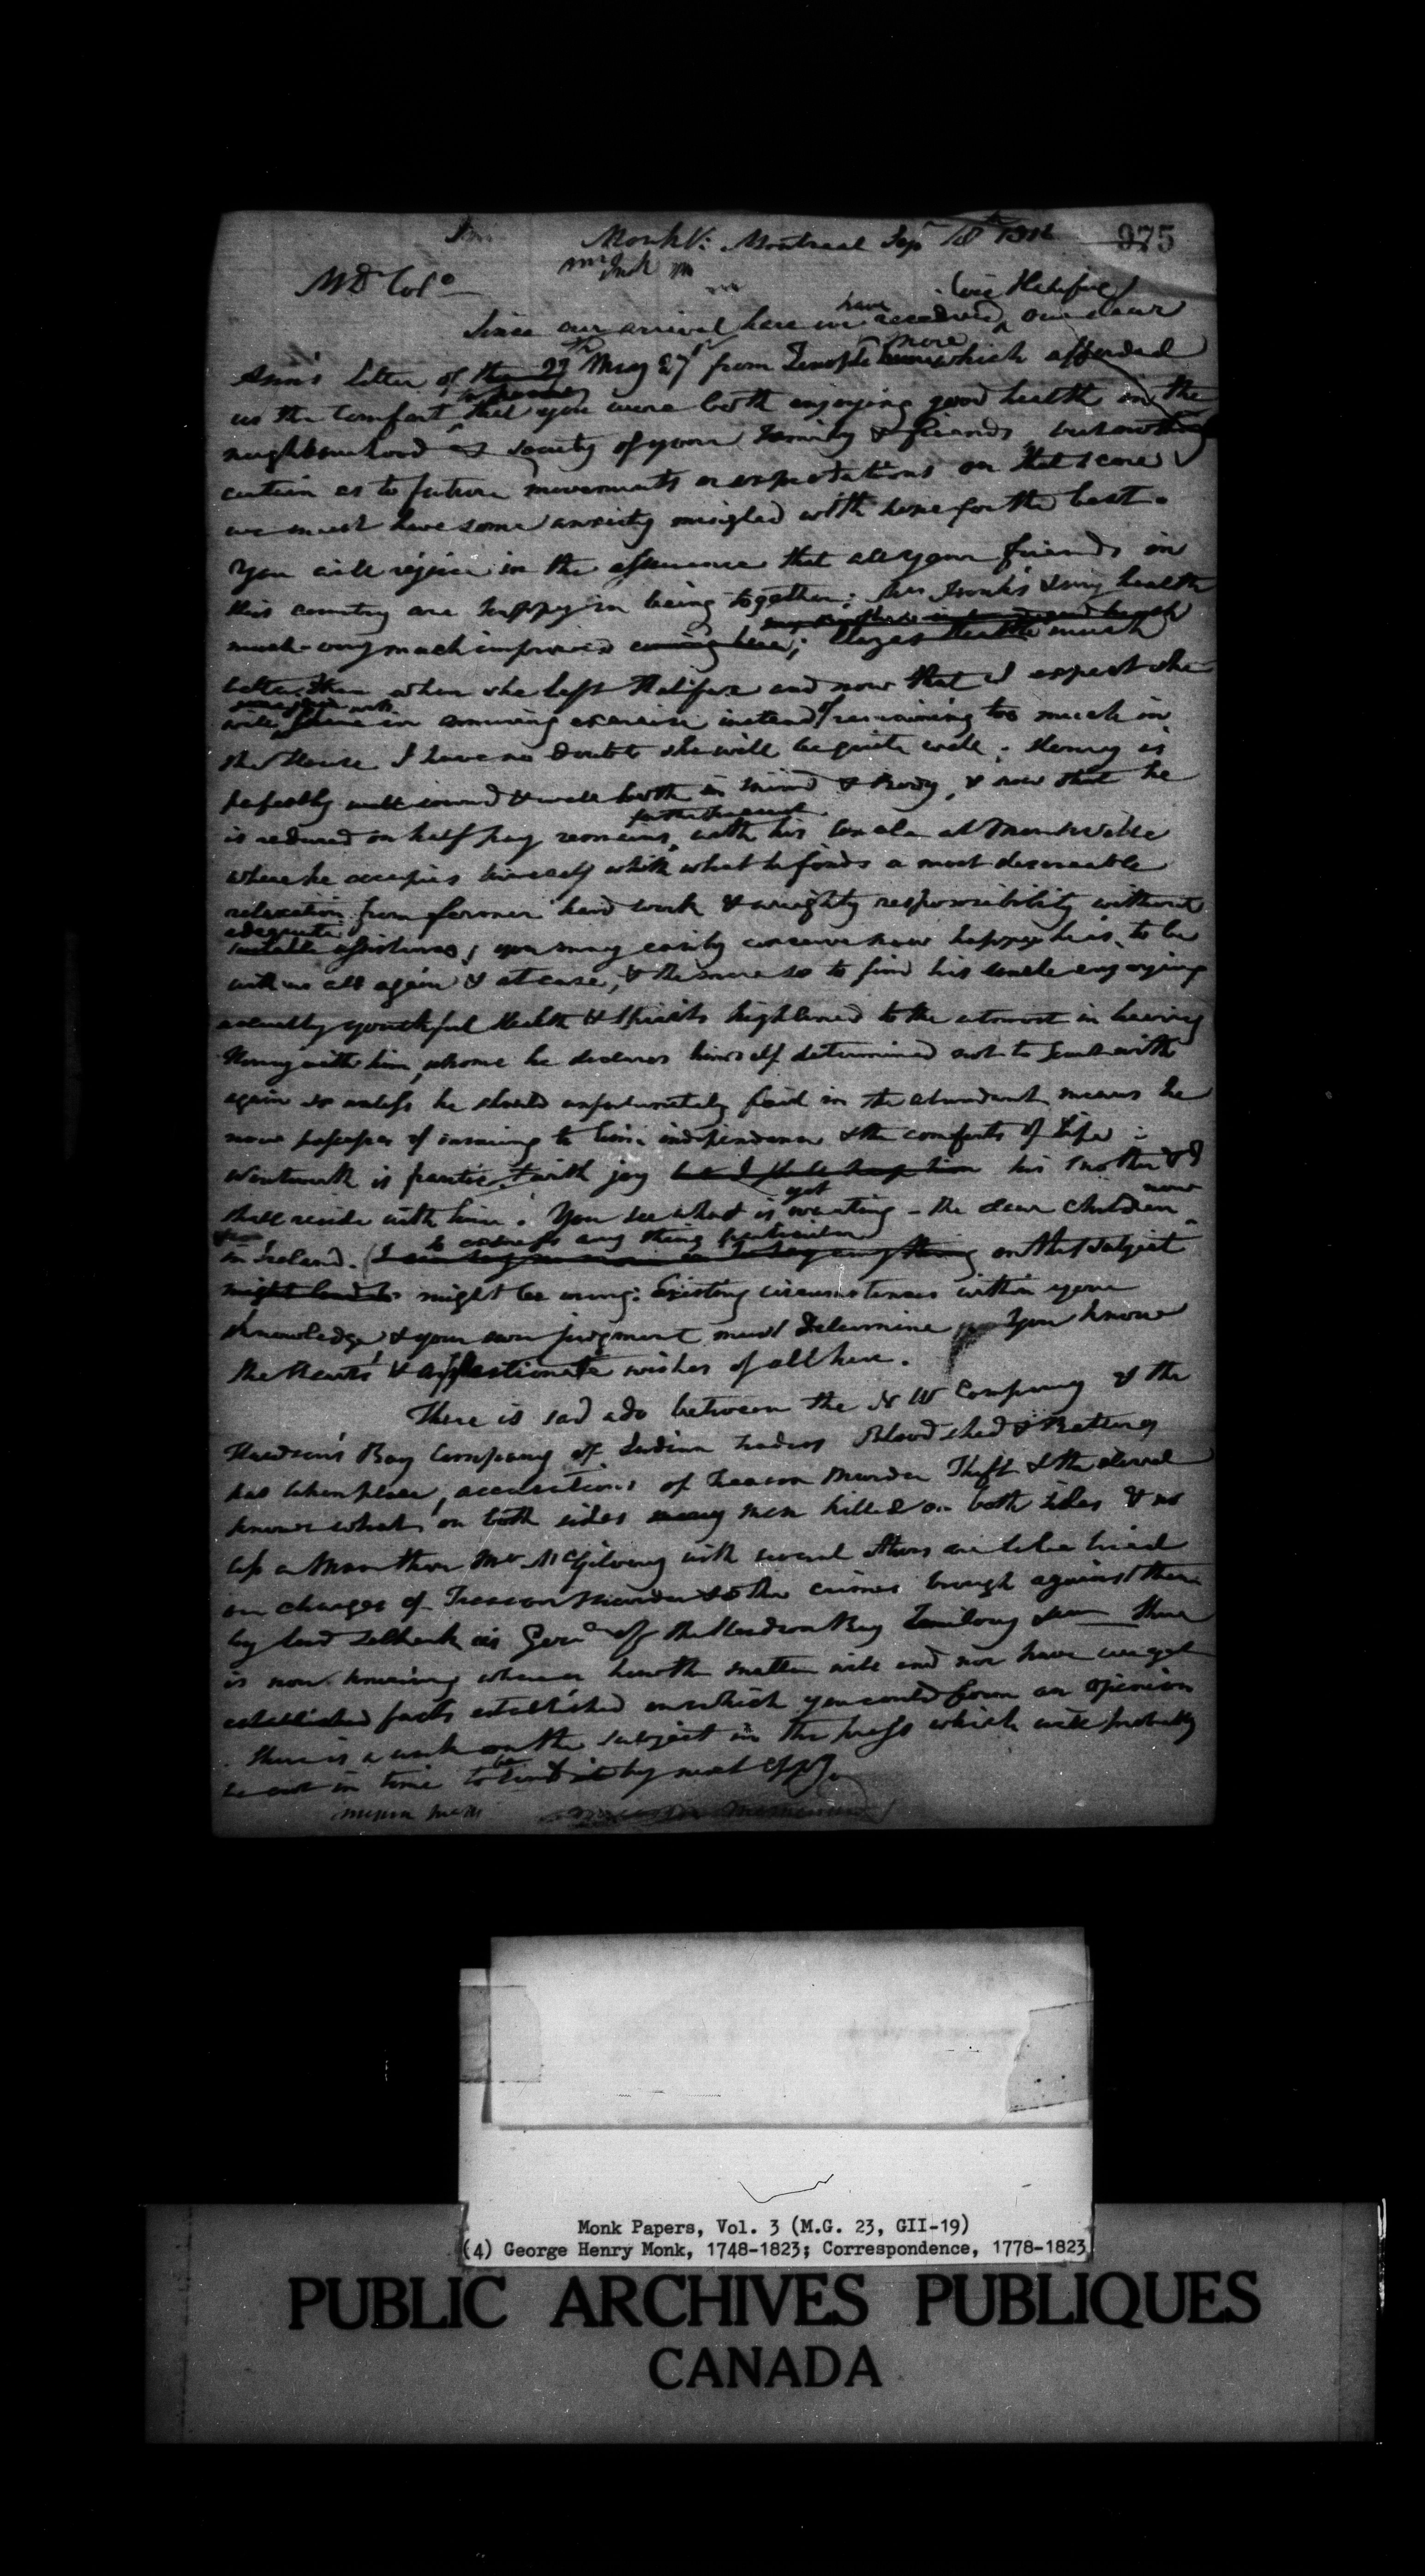 Monkv: Montreal Sep 18th 1816
975
My Dr Colo
(via Halifax)
Since our arrival here we have received our dear
Ann's letter of the 27 May 27 from Templemore which afforded
us the comfort that you were both enjoying good health in the
neighbourhood & society of your Family & friends, but
certain as to future movements or expectations on that score
we must have some anxiety mingled with hope for the best.
You will rejoice in the assurance that all your friends in
this country are happy in being together; Mrs Monk's & my health
much - very much improved coming here; Elizas health much
better than when she left Halifax and now that I expect she
will in amusing exercise instead of remaining too much in
the House I have no doubt she will be quite well. Henry is
perfectly well sound & well both in mind & body, & now that he
is reduced on half pay remains, for the present with his Uncle at Monkville
where he occupies himself with what he finds a most desireable
relaxation from former hard work & weighty responsibility without
adequate suitable assistance; you may easily conceive how happy he is to be
with us all again & at ease, & the more so to find his uncle enjoying
actually youthful Health & Spirits highlened to the utmost in having
Henry with him, whome he declares himself determined not to part with
again unless he should unfortunately fail in the abundant means he
now possesses of insuring to him independence & the comforts of Life
Wentworth is frantic with joy his mother & I
shall reside with him. You see what is yet wanting - the dear children now
in Ireland. (to express any thing particular on this subject
might lead to might be wrong: Existing circumstances within your
knowledge & your own judgment must determine You know
the Hearts & affectionate wishes of all here.
There is sad ado between the N W Company & the
Hudson's Bay Company of Indian traders Blood shed & Battery
has taken place, accusations of Treason Murder Theft & the devil
knows what on both sides many men killed on both sides & no
less a Man than Mr McGilvray with several others are to be tried
on charges of Treason Murder & other crimes brough against them
by Lord Selkirk as Gov of the Hudson Bay Territory there
is now knowing when or how the matter will end nor have we yet
established facts established on which you could form an opinion
There is a work on the subject in the press which will probably
be out in time to be sent by next oppy.
Monk Papers, Vol. 3 (M.G. 23, GII-19)
(4) George Henry Monk, 1748-1823; Correspondence, 1778-1823
PUBLIC ARCHIVES PUBLIQUES
CANADA